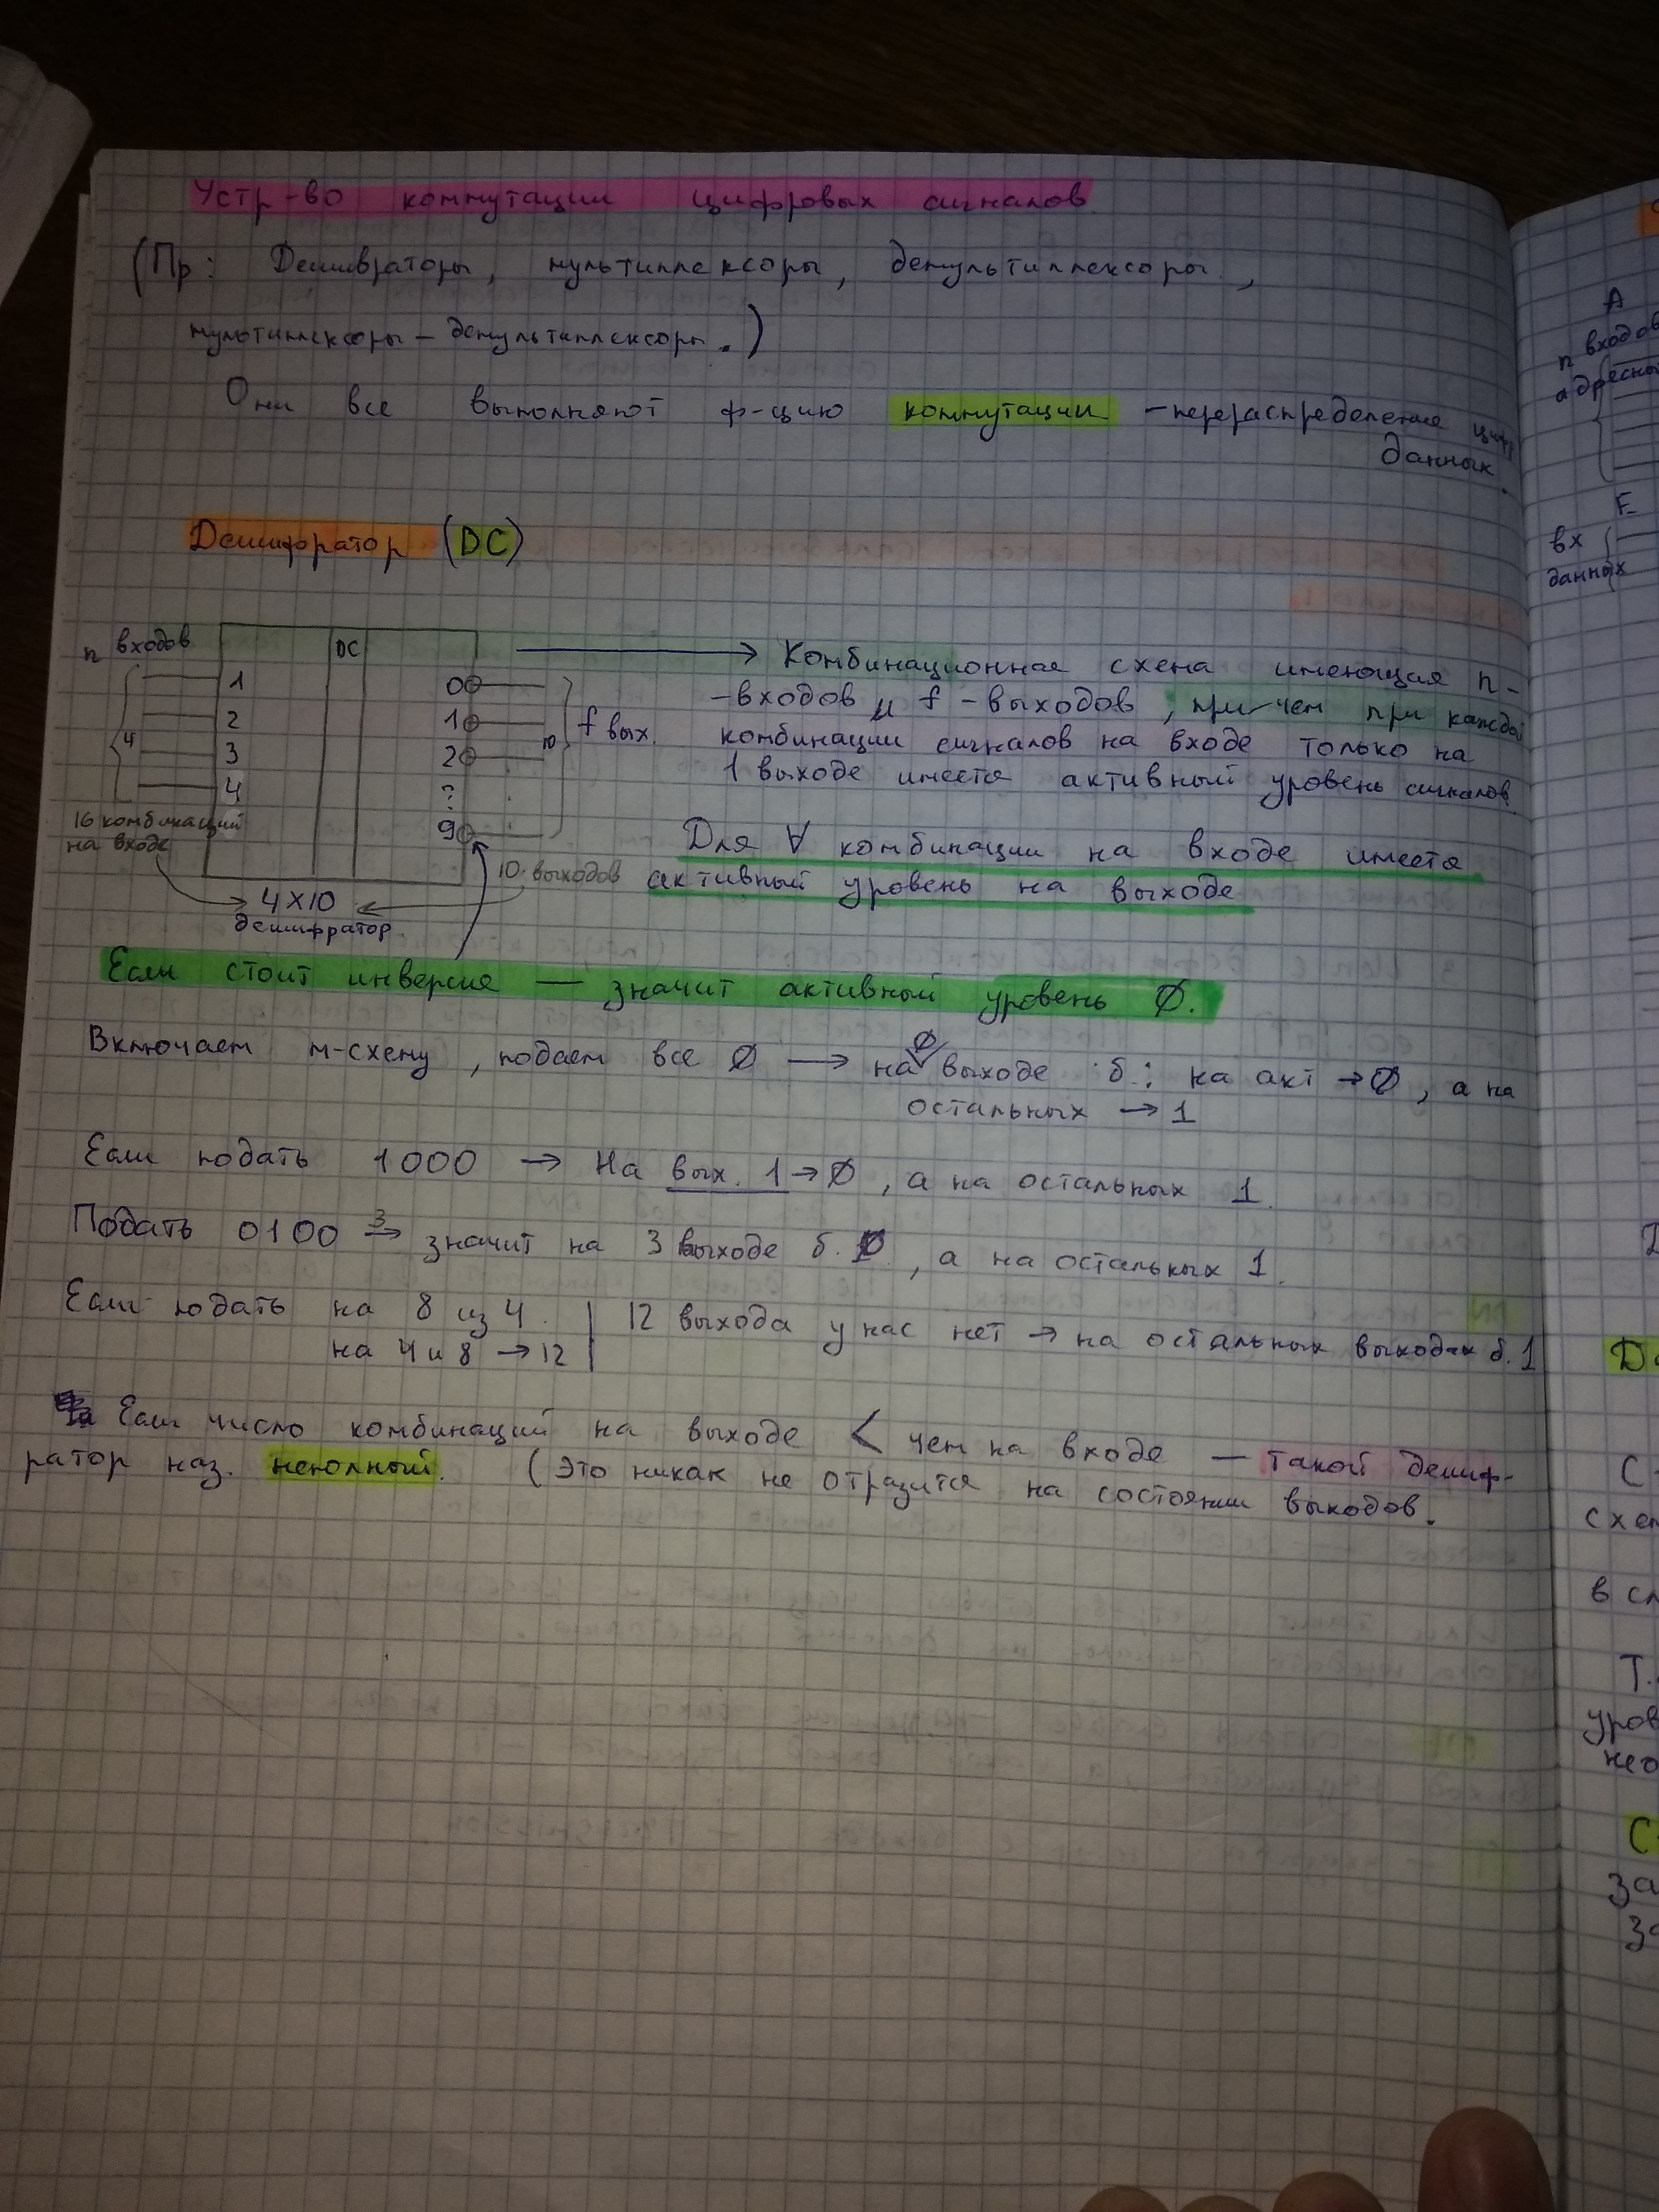 Устр-во коммутации цифровых сигналов
(Пр: Дешивраторы, мультиплексоры, демультиплексоры,
мультиплексоры – демультиплексоры.)
Они все выполняют ф-цию коммутации – перераспределение циф.
данных.
Дешифратор (DC)
n входов
DC
4
1
2
3
4
0
1
2
?
9
10
f вых.
16 комбинаций
на входе
10 выходов
4X10
дешифратор.
Комбинационная схема имеющая n-
-входов и f-выходов, при чем при каждой
комбинации сигналов на входе только на
1 выходе имеется активный уровень сигналов.
Для ∀ комбинации на входе имеется
активный уровень на выходе
Если стоит инверсия — значит активный уровень Ø.
Включаем м-схему, подаем все Ø → на Ø выходе б.: на акт → Ø, а на
остальных → 1
Если подать 1000 → На вых. 1 → Ø, а на остальных 1.
Подать 0100 3→ значит на 3 выходе б. Ø, а на остальных 1.
Если подать на 8 из 4.
на 4 и 8 → 12
12 выхода у нас нет → на остальных выходах б. 1
Если число комбинаций на выходе < чем на входе — такой дешиф-
ратор наз. неполный. (Это никак не отразится на состоянии выходов.
А
n входов
адресны
F
вх
данных
С
схем
в сл
Т.
уров
нео
С
за
за